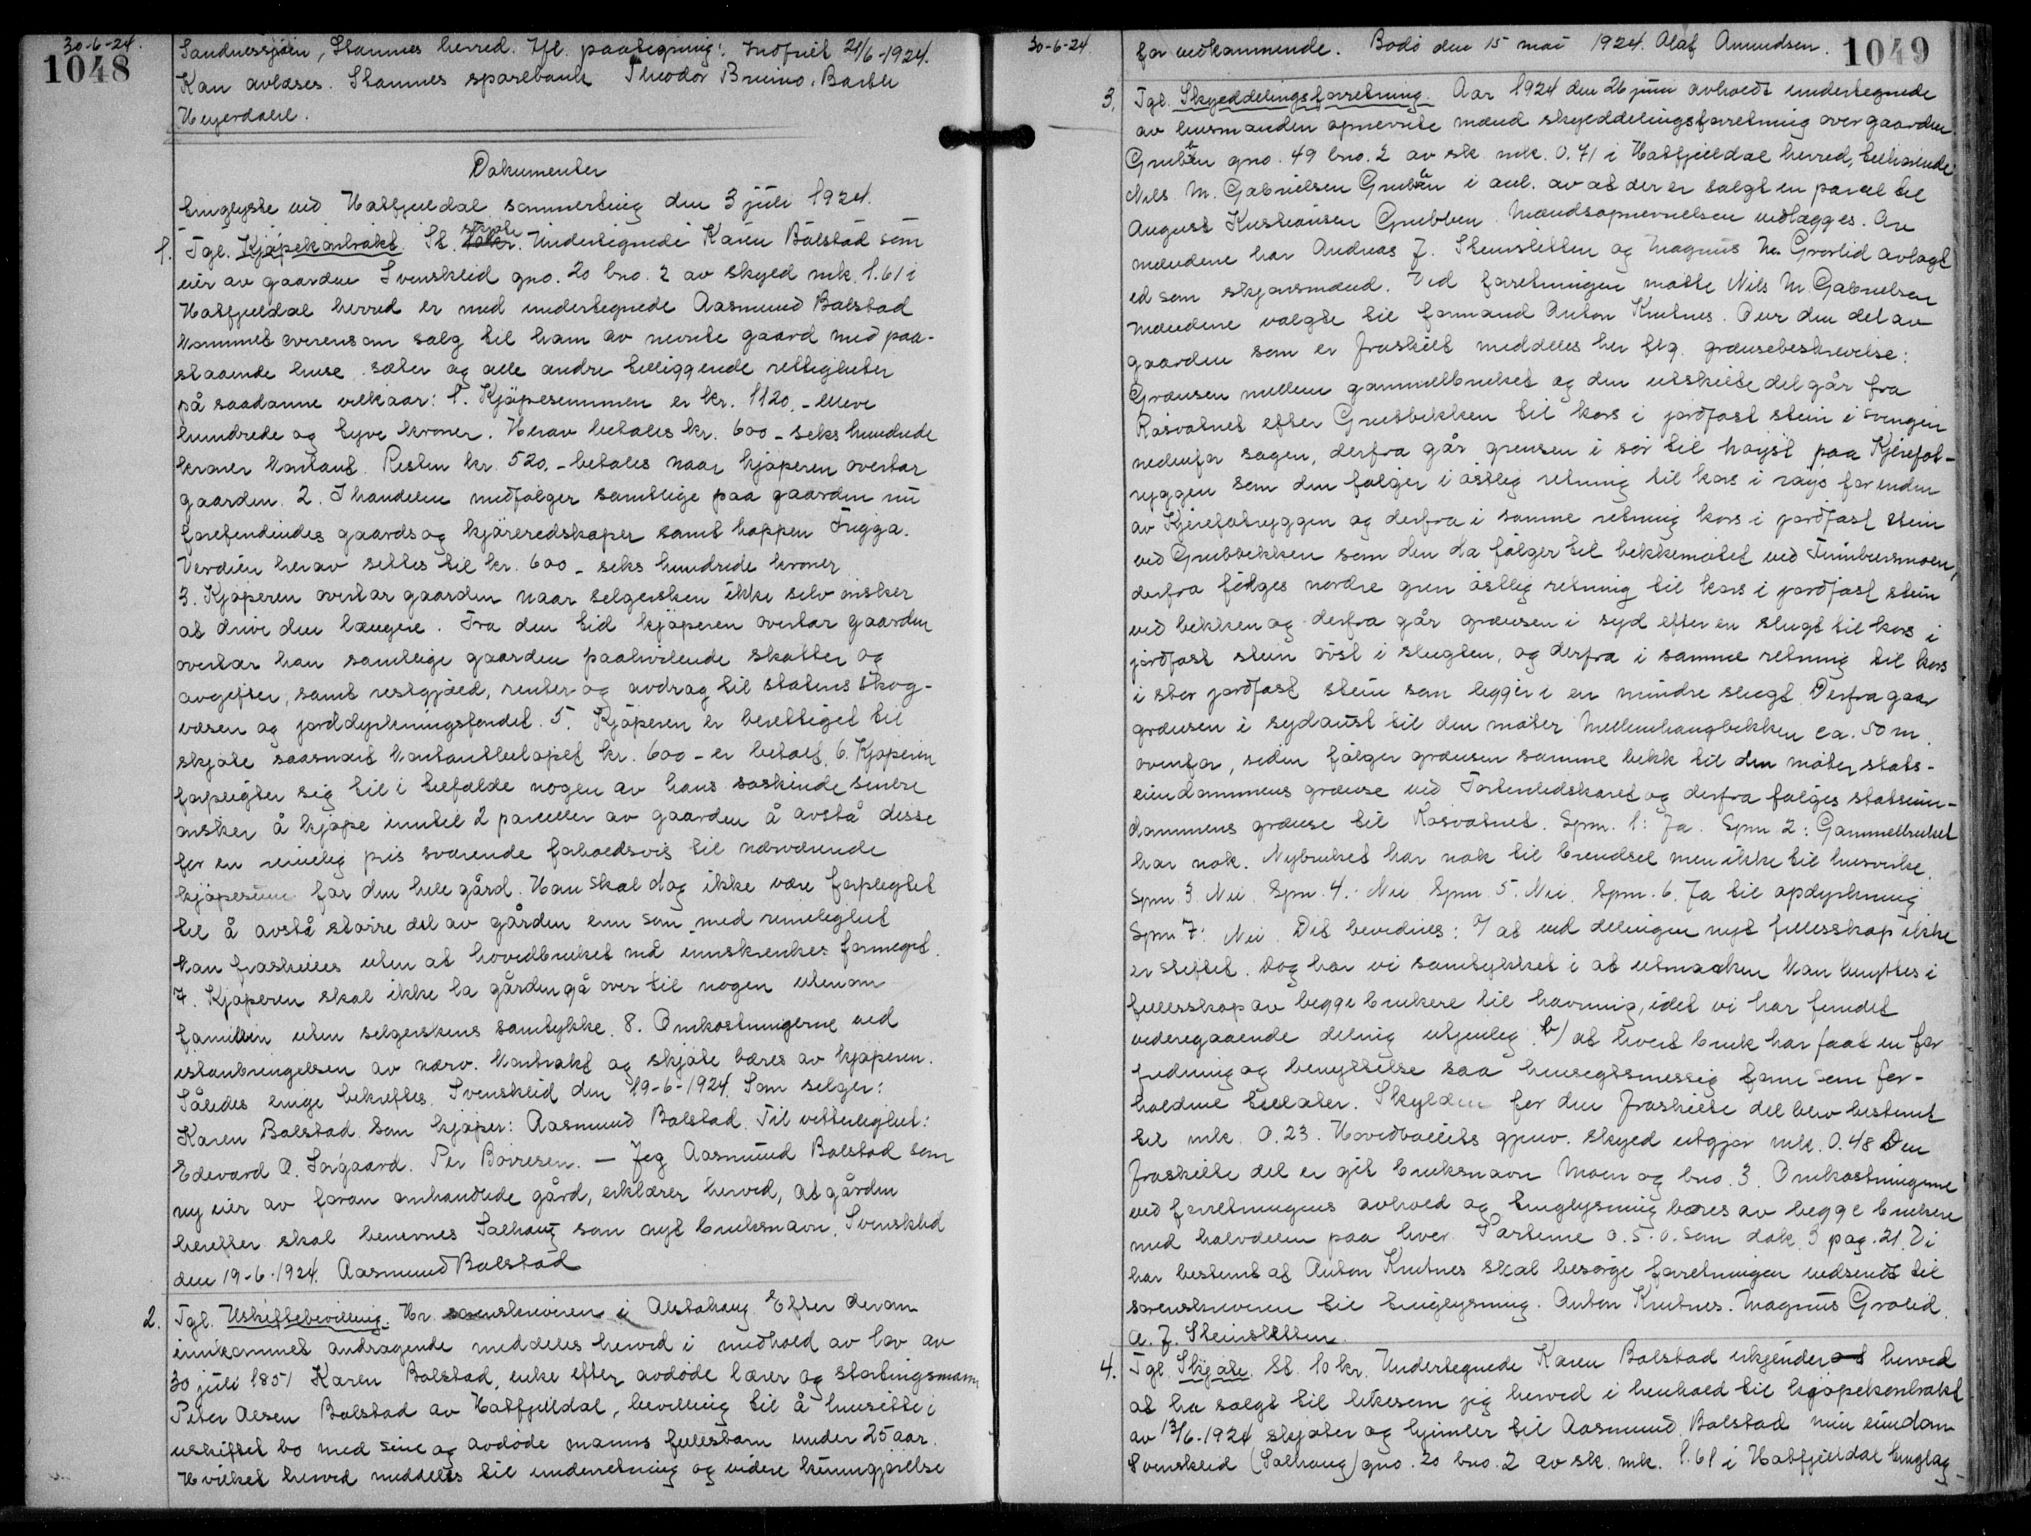 30-6-24.
1048
Sandnessjøen, Stamnes herred. Tgl. paategning: Indfriet 21/6-1924.
Kan avlæses. Stamnes sparebank Theodor Bruino. Barth
Heyerdahl.
Dokumenter
tinglyste ved Hatfjeldal sommerting den 3 juli 1924.
1. Tgl. Kjøpekontrakt. St. skjøte. Undertegnede Karen Balstad som
eier av gaarden Svenskleid gno. 20 bno. 2 av skyld mk. 1.61 i
Hatfjeldal herred er med undertegnede Aasmund Balstad
kommet overens om salg til ham av nevnte gaard med paa-
staaende huse, sæter og alle andre tilliggende rettigheter
på saadanne vilkaar: 1. Kjøpesummen er kr. 1120,- elleve
hundrede og tyve kroner. Herav betales kr. 600 - seks hundrede
kroner kontant. Resten kr. 520,- betales naar kjøperen overtar
gaarden. 2. I handelen medfølger samtlige paa gaarden nu
forefindendes gaards og kjøreredskaper samt hoppen Frigga.
Verdien herav settes til kr. 600 - seks hundrede kroner
3. Kjøperen overtar gaarden naar selgersken ikke selv ønsker
at drive den længere. Fra den tid kjøperen overtar gaarden
overtar han samtlige gaarden paahvilende skatter og
avgifter, samt restgjæld, renter og avdrag til statens skog-
væsen og jorddyrkningsfondet. 5. Kjøperen er berettiget til
skjøte saasnart kontantbeløpet kr. 600 - er betalt. 6. Kjøperen
forpligter sig til i tilfælde nogen av hans søskende senere
ønsker å kjøpe inntil 2 parceller av gaarden å avstå disse
for en rimelig pris svarende forholdsvis til nærværende
kjøpesum for den hele gård. Han skal dog ikke være forpligtet
til å avstå større del av gården enn som med rimelighet
kan fraskilles uten at hovedbruket må innskrenkes formeget.
7. Kjøperen skal ikke la gården gå over til nogen utenom
familien uten selgerskens samtykke. 8. Omkostningerne ved
istanbringelsen av nærv. kontrakt og skjøte bæres av kjøperen.
Således enige bekreftes. Svenskleid den 19-6-1924. Som selger:
Karen Balstad. Som kjøper: Aasmund Balstad. Til vitterlighet:
Edevard A. Sørgaard. Per Børresen. — Jeg Aasmund Balstad som
ny eier av foran omhandlede gård, erklærer herved, at gården
herefter skal benevnes Solhaug som nyt bruksnavn. Svenskleid
den 19-6-1924. Aasmund Balstad
2. Tgl. Uskiftebevilling. Hr. sorenskriveren i Alstahaug. Efter derom
innkommet andragende meddeles herved i medhold av lov av
30 juli 1851 Karen Balstad, enke efter avdøde lærer og stortingsmann
Peter Olsen Balstad av Hatfjelldal, bevilling til å hensitte i
uskiftet bo med sine og avdøde manns fellesbarn under 25 aar.
Hvilket herved meddeles til underretning og videre kunngjørelse
30-6-24
1049
for vedkommende. Bodø den 15 mai 1924. Olaf Amundsen.
3. Tgl. Skylddelingsforretning. Aar 1924 den 26 juni avholdt undertegnede
av lensmanden opnevnte mænd skylddelingsforretning over gaarden
Grubben gno. 49 bno. 2 av sk. mk. 0.71 i Hatfjelldal herred, tilhørende
Nils M. Gabrielsen Grubben i anl. av at der er solgt en parcel til
August Kristiansen Grubben. Mændsopnevnelsen vedlægges. Av
mændene har Andreas J. Steinsletten og Magnus M. Grovlid avlagt
ed som skjønsmænd. Ved forretningen møtte Nils M Gabrielsen
Mændene valgte til formand Anton Krutnes. Over den del av
gaarden som er fraskilt meddeles her flg. grænsebeskrivelse:
Grænsen mellem gammelbruket og den utskilte del går fra
Røsvatnet efter Grubbekken til kors i jordfast stein i svingen
nedenfor sagen, derfra går grensen i sør til høyst paa Kjerefot-
ryggen som den følger i østlig retning til kors i røys for enden
av Kjerefotryggen og derfra i samme retning kors i jordfast stein
ved Grubbekken som den da følger til bekkemøtet ved Timburmoen,
derfra følges nordre gren østlig retning til kors i jordfast stein
ved bekken og derfra går grænsen i syd efter en slugt til kors i
jordfast stein øvst i slugten, og derfra i samme retning til kors
i stor jordfast stein som ligger i en mindre slugt. Derfra gaar
grænsen i sydaust til den møter Mellemhaugbekken ca. 50 m.
ovenfor, siden følger grænsen samme bekk til den møter stats-
eiendommens grænse ved Tortenlidskaret og derfra følges statseien-
dommens grænse til Røsvatnet. Spm. 1: Ja. Spm 2: Gammelbruket
har nok. Nybruket har nok til brendsel men ikke til husvirke.
Spm 3 Nei. Spm. 4: Nei Spm 5. Nei. Spm. 6. Ja til opdyrkning
Spm 7: Nei. Det bevidnes: a/ at ved delingen nyt fellesskap ikke
er stiftet. Dog har vi samtykket i at utmarken kan benyttes i
fellesskap av begge brukere til havning, idet vi har fundet
videregaaende deling utjenlig. b/ at hvert bruk har faat en for
fredning og benyttelse saa hensegtsmessig form som for-
holdene tillater. Skylden for den fraskilte del blev bestemt
til mk. 0.23. Hovedbølets gjenv. skyld utgjør mk. 0.48 Den
fraskilte del er git bruksnavn Moen og bno. 3. Omkostningerne
ved forretningens avhold og tinglysning bæres av begge brukere
med halvdelen paa hver. Partene o.s.v. som dok. 3 pag. 21. Vi
har bestemt at Anton Krutnes skal besørge forretningen indsendt til
sorenskriveren til tinglysning. Anton Krutnes. Magnus Grolid.
A. J. Steinsletten.
4. Tgl. Skjøte. St. 10 kr. Undertegnede Karen Balstad erkjender herved
at ha solgt til likesom jeg herved i henhold til kjøpekontrakt
av 13/6-1924 skjøter og hjemler til Aasmund Balstad min eiendom
Svenskleid (Solhaug) gno. 20 bno. 2 av sk. mk. 1.61 i Hatfjelldal tinglag